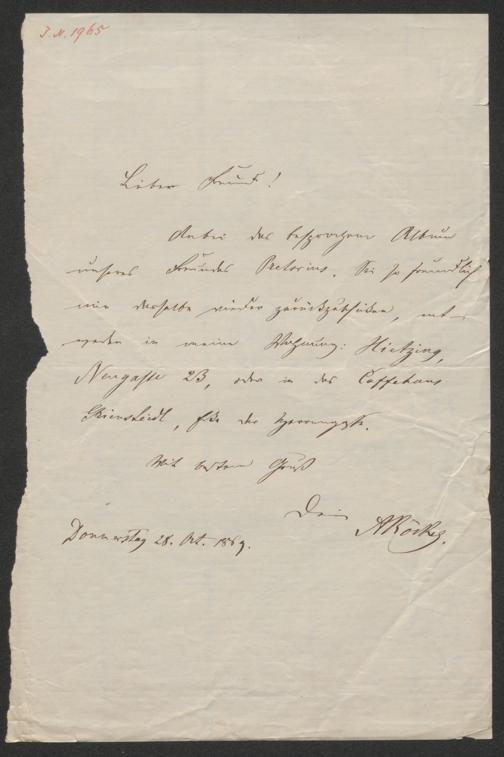 J. N. 1965
Lieber Freund!
Anbei das besprochene Album
unseres Freundes Pretorius. Sei so freundlich
mir dasselbe wieder zurückzusenden, ent-
weder in meine Wohnung: Hietzing,
Neugasse 23, oder in das Caffehaus
Griensteidl, Ecke der Herrengasse.
Mit bestem Gruß
Dein ARöckel.
Donnerstag 28. Okt. 1869.